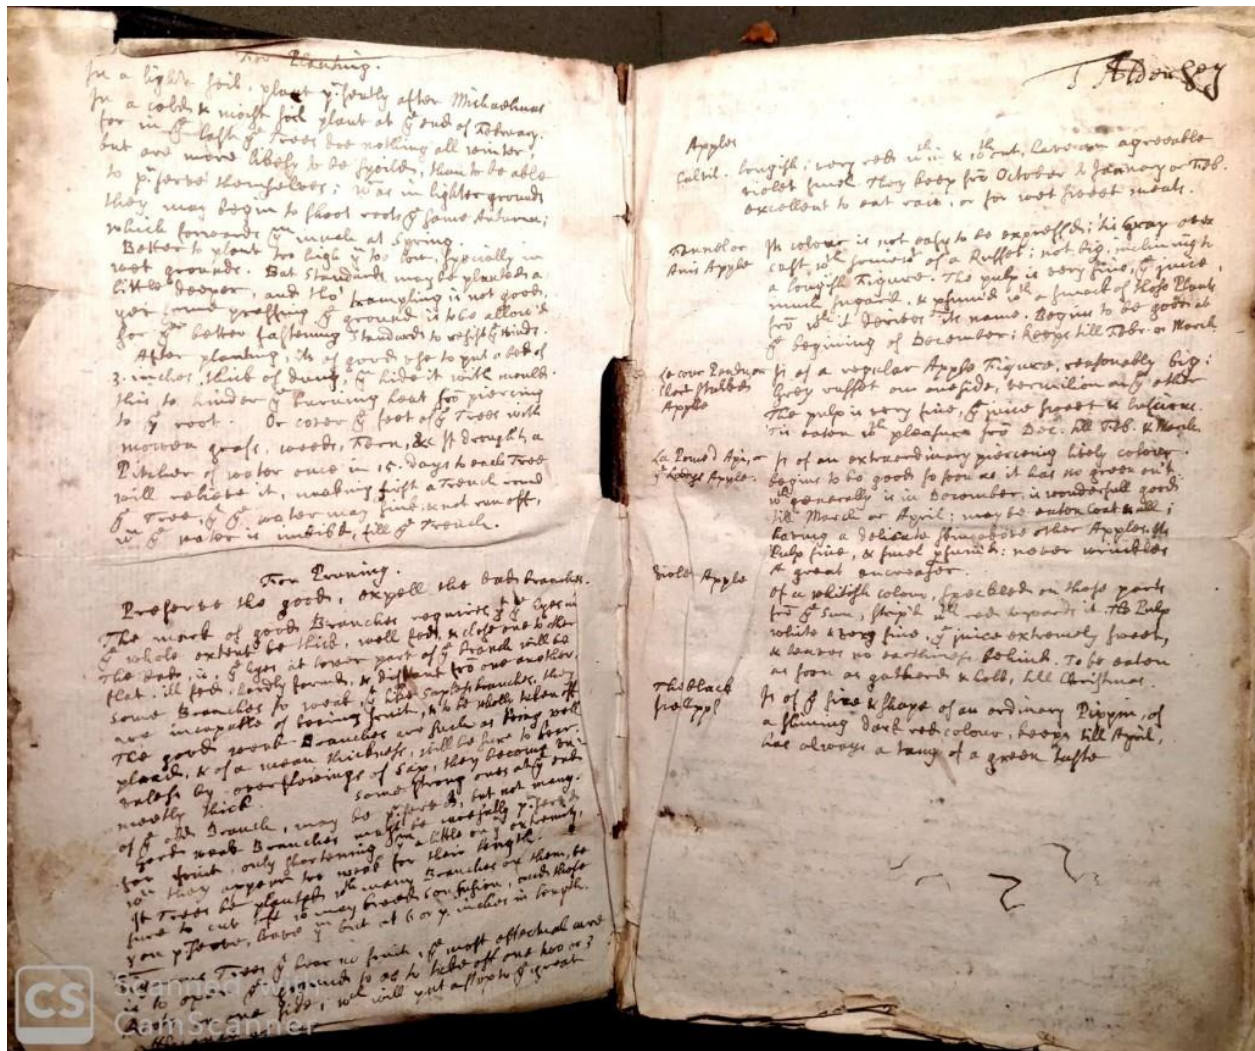 For Planting.
In a light soil, plant p.sently after Michaelmas
In a cold & moist soil plant at ye end of February.
for in ye last ye Trees doe nothing all winter,
but are more likely to be spoiled, than to be able
to p.serve themselves; wras in lighter grounds
they may begin to shoot roots ye same Autumn;
which forwards ym much at Spring.
Better to plant too high yn too low, Specially in
wet grounds. But Standards may be planted a
little deeper, and tho' trampling is not good,
yet some pressing ye ground is to be allow'd
for ye better fastening Standards to resist ye winds.
After planting, its of good use to put a bed of
3. inches thick of dung, yn hide it with mould.
this to hinder ye burning heat frō piercing
to ye root. Or cover ye feet of ye Trees with
mowen grass, weeds, Fern, &c If drought, a
Pitcher of water once in 15. days to each Tree
will relieve it, making first a Trench round
ye Tree, yt ye water may sink, & not run off,
wn ye water is imbib'd, fill ye Trench.
For Pruning.
Preserve the good, expell the bad branches.
The mark of good Branches requires yt ye Eyes in
ye whole extent be thick, well fed, & close one to other
The bad, is, ye Eyes at lower part of ye branch will be
flat, ill fed, hardly formd, & distant frō one another.
some Branches so weak, yt like Sapless branches, they
are incapable of bearing fruit, & to be wholly taken off
The good weak Branches are such as being well
placed, & of a mean thickness, will be sure to bear.
unless by overflowings of Sap, they become
meetly thick. some strong ones at ye end
of ye old Branch, may be p.served, but not many.
Good weak Branches must be carefully p.served
for fruit, only shortening ym a little on ye extremity,
wn they appear too weak for their length.
If Trees be planted wth many Branches on them, be
sure to cut off wt may breed confusion, and those
you p.serve, leave ym but at 6 or 7. inches in length.
Trees yt bear no fruit, ye most effectual cure
is to open ye ground so as to take off one two or 3
one side, wch will put a stop to ye great
T Aldersey
Apples
Calvil. longish; very red wthin & wthout, have an agreeable
violet smel. They keep frō October to January or Feb.
excellent to eat raw, or for wet sweet meats.
Fennel or Its colour is not easy to be expressed; tis Gray over
Anis Apple cast wth somewt of a Russet; not big, inclining to
a longish Figure. The pulp is very fine, ye juice
much sugard, & pfum'd wth a smack of those Plants
frō wch it derives its name. Begins to be good at
ye begining of December; keeps till Febr. or March
Short Stalked Is of a regular Apple Figure, reasonably big;
Apple Grey russet on oneside, vermilion on ye other
The pulp is very fine, ye juice sweet &
Tis eaten wth pleasure frō Dec. till Feb. & March
La Pome d'Api, or Is of an extraordinary piercing lively colour.
ye Ladys Apple. begins to be good so soon as it has no green on't
wch generally is in December, is wonderfull good
till March or April; may be eaten Coat & all;
having a delicate skin above other Apples. Its
Pulp fine, & smel pfum'd: never wrinkles
A great encreaser.
Violet Apple of a whitish colour, speckled on those parts
frō ye sun, strip'd wth red towards it. The Pulp
white & very fine, ye juice extremely sweet,
& leaves no earthiness behind. To be eaten
as soon as gathered & hold, till Christmas.
The black Is of ye size & shape of an ordinary Pippin, of
a shining dark red colour, keeps till April,
has always a tang of a green taste
CS Scanned with
CamScanner